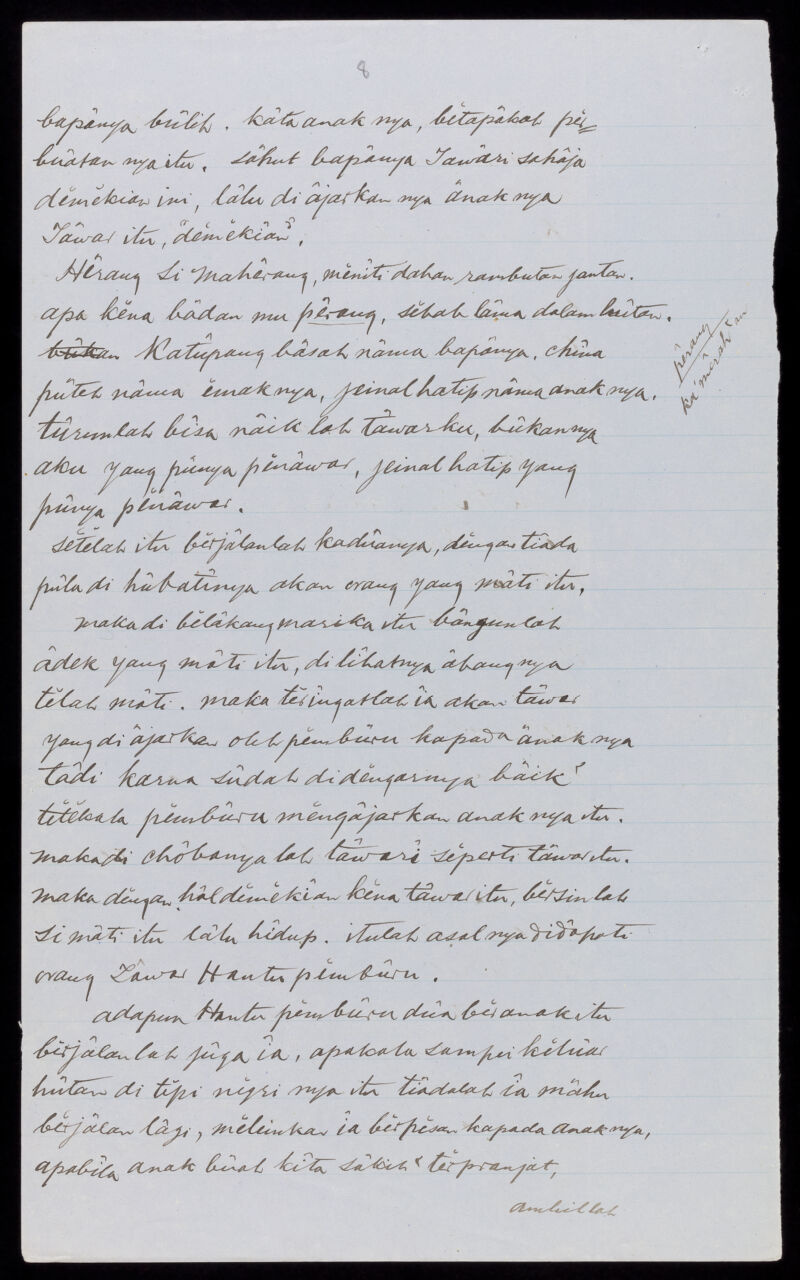 8
bapânya bûlih. kâta anak nya, bĕtapâkah pĕr=
bûatan nya itu. sâhut bapânya Tawâri sahâja
dĕmĕkian ini, lâlu di âjarkan nya ânak nya
Tâwar itu, "dĕmĕkîan",
Hêrang Si Mahêrang, mĕnîti dahan rambutan jantan.
apa kĕna bâdan mu pêrang, sĕbab lâma dalam hûtan.
bûkan Katûpang bâsah nâma bapânya, china
pûteh nâma ĕmak nya, jeinal hatip nâma anak nya.
tûrunlah bîsa nâik lah tâwarku, bûkannya
aku yang pûnya pĕnâwar, jeinal hatip yang
pûnya pĕnâwar.
sĕtĕlah itu bĕrjâlanlah kadûanya, dĕngan tîada
pûla di hûbatînya akan orang yang mâti itu.
maka di bĕlâkang marika itu bângunlah
âdek yang mâti itu, di lîhatnya âbang nya
tĕlah mâti. maka tĕrîngatlah îa akan tâwar
yang di âjarkan oleh pĕmbûru kapada ânak nya
tâdi karna sûdah didĕngarnya bâik²
tĕtĕkala pĕmbûru mĕngâjarkan anak nya itu.
maka di chôbanya lah tâwari sĕperti tâwar itu.
maka dĕngan hâl dĕmĕkîan kĕna tâwar itu, bĕrsinlah
si mâti itu lâlu hîdup. itulah asal nya didâpati
orang Tâwar Hantu pĕmbûru.
adapun Hantu pĕmbûru dûa bĕranak itu
bĕrjâlanlah jûga îa, apakala sampei kĕlûar
hûtan di tĕpi nĕgri nya itu tîadalah îa mâhu
bĕrjâlan lâgi, mĕleinkan îa bĕrpĕsan kapada anak nya,
apabîla anak bûah kîta sâkit² tĕrpranjat,
ambillah
pêrang
ka' mêrah² an